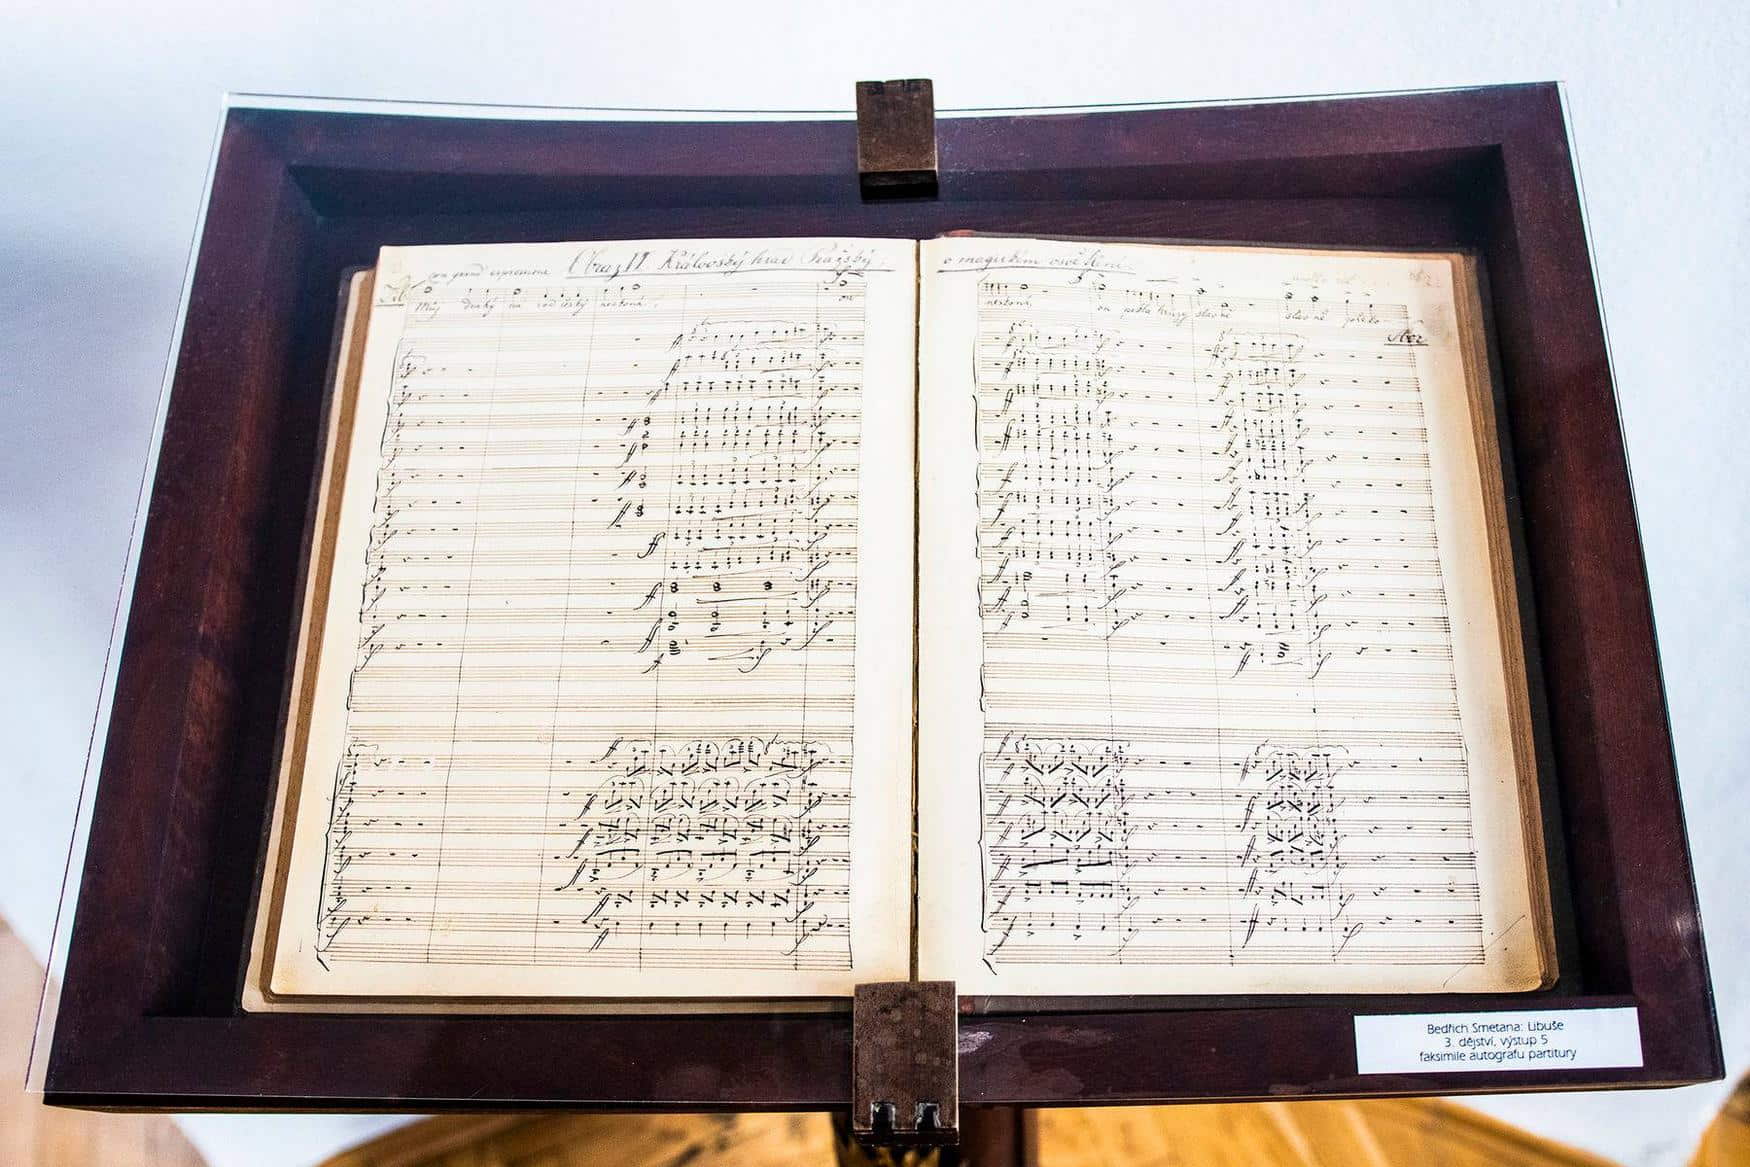 con grand espressione Obraz VI. Královský hrad Pražský
v magickém osvětlení.
Můj drahý národ český neskoná!
neskoná, on pekla hrůzy slavně slavně překo
Sbor
Bedřich Smetana: Libuše
3. dějství, výstup 5
faksimile autografu partitury